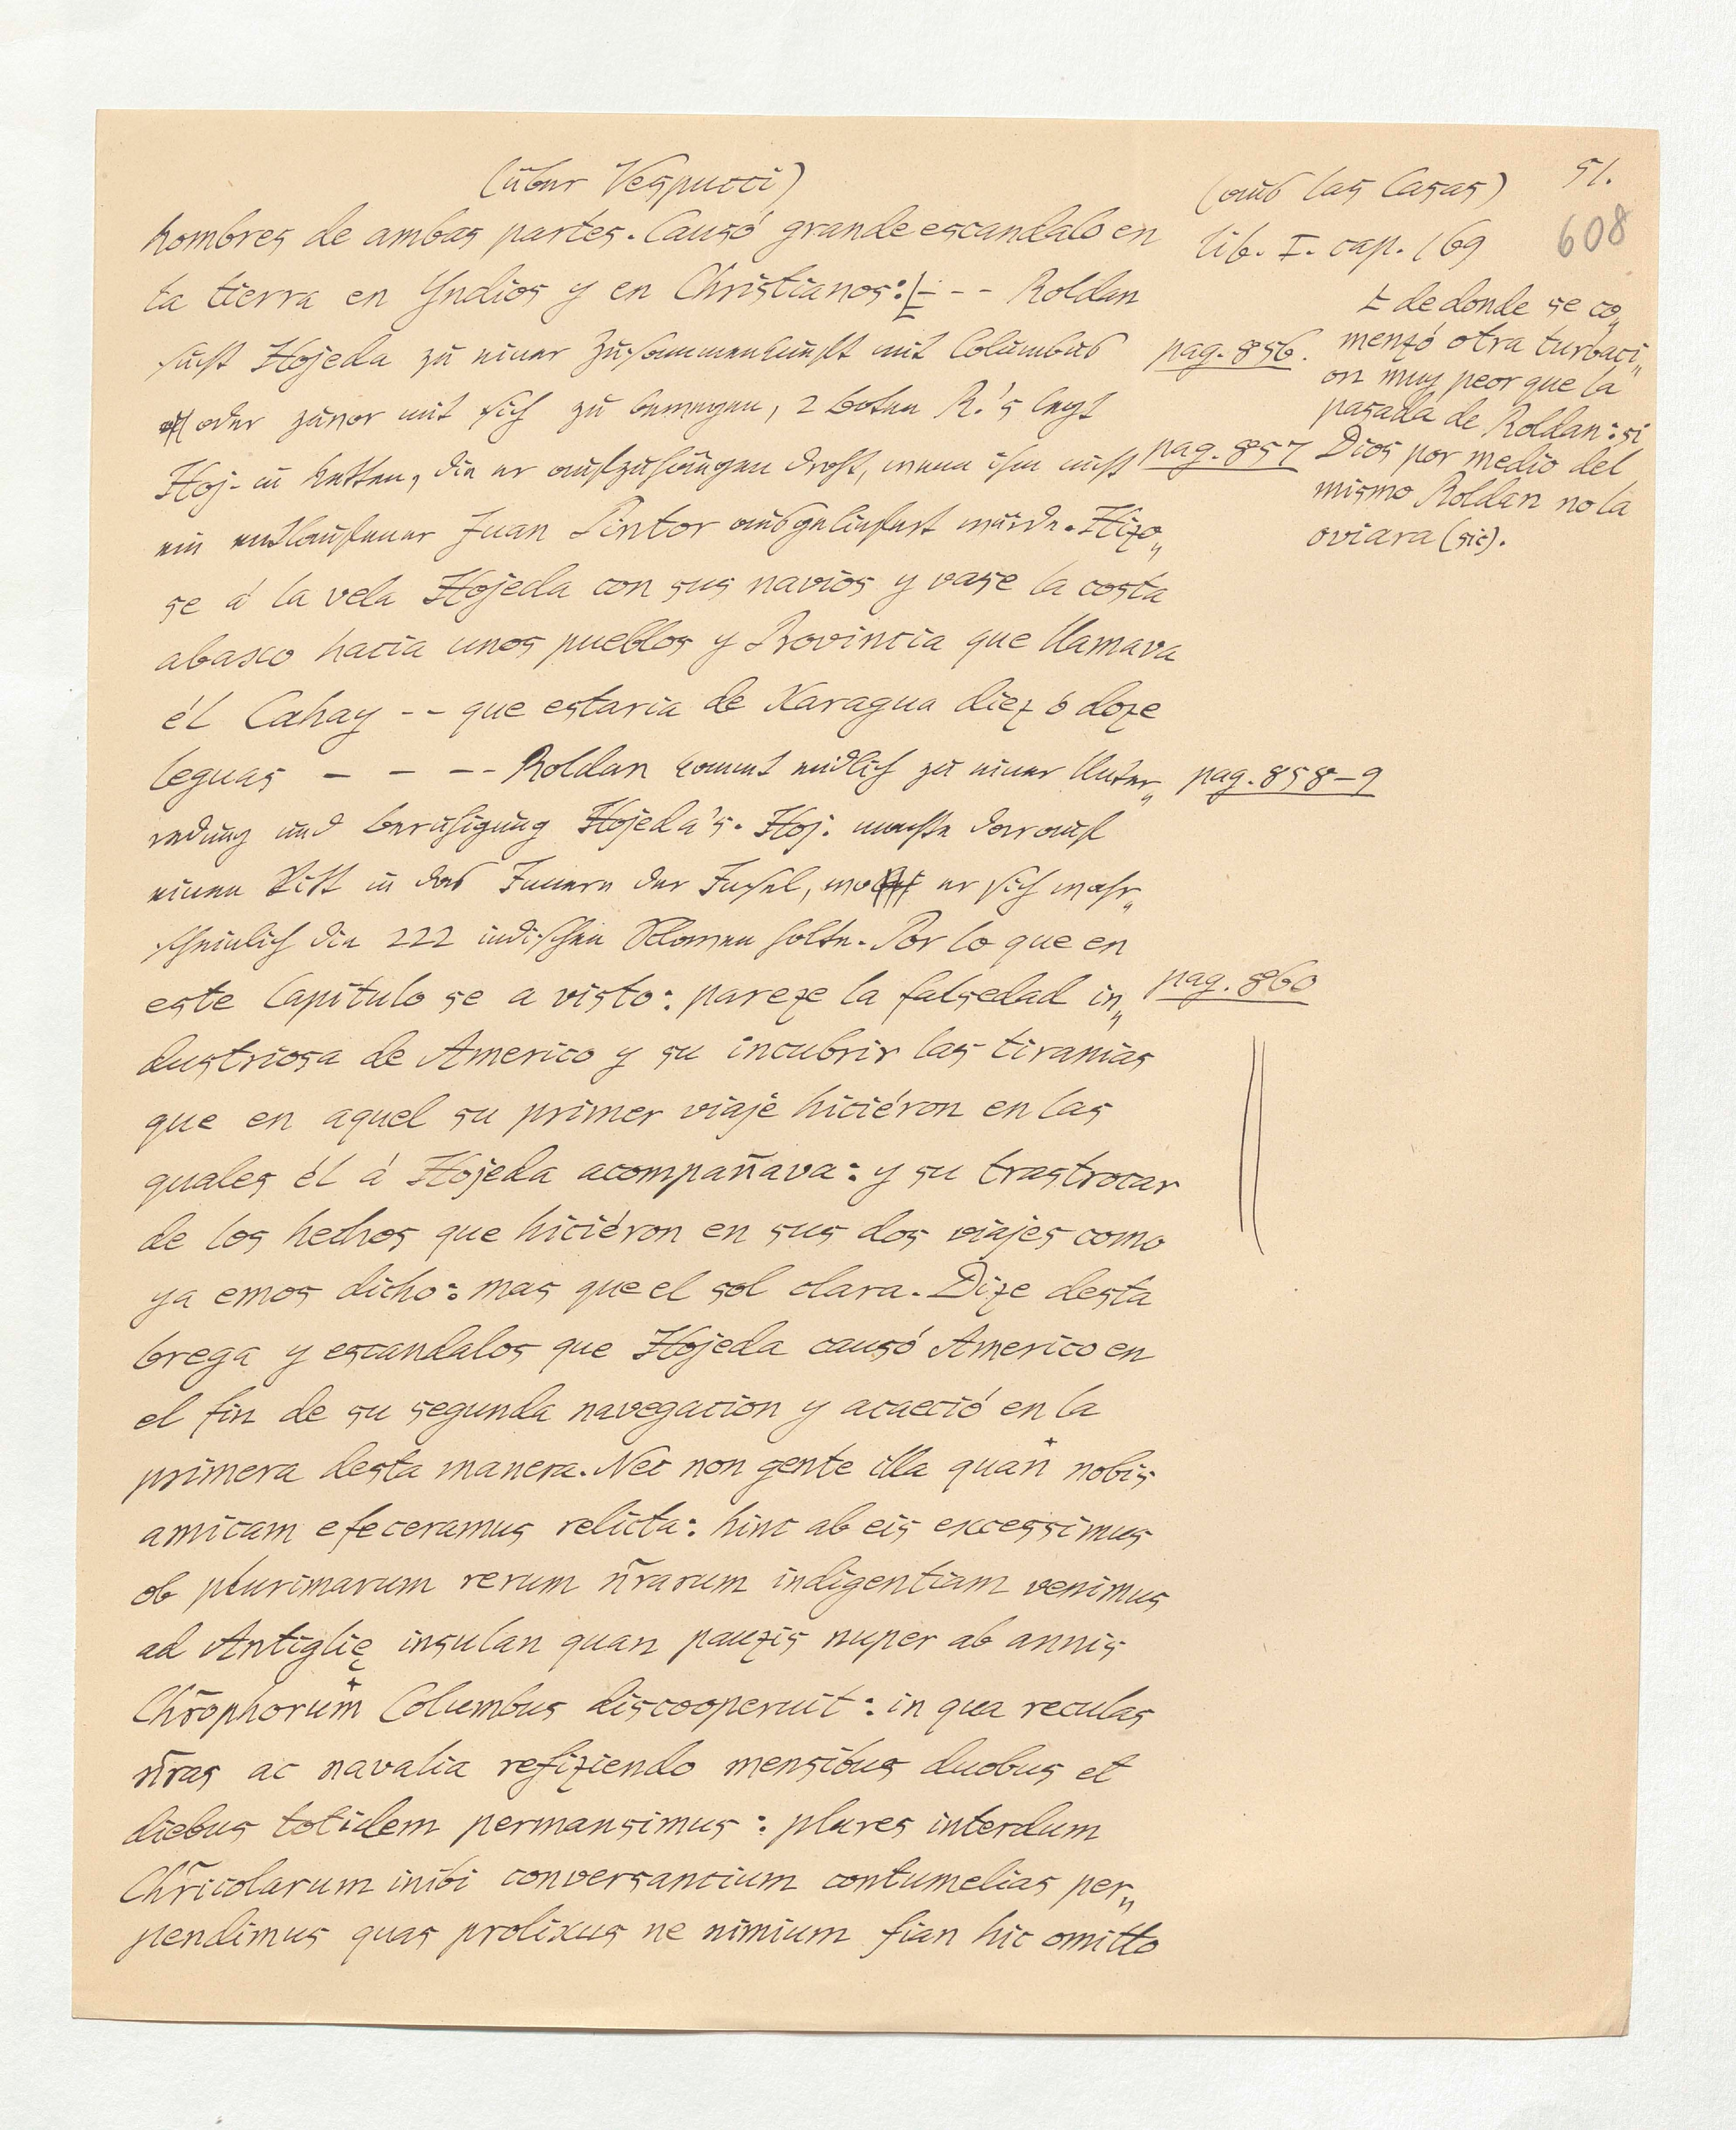 (über Vespucci)
(aus las Casas)
51.
608
lib. I. cap. 169
hombres de ambas partes. Causó grande escandalo en
la tierra en Yndios y en Christianos: - - - Roldan
sucht Hojeda zu einer Zusammenkunft mit Columbus
oder zuvor mit sich zu bewegen, 2 boten R.'s legt
Hoj. in Ketten, die er aufzuhängen droht, wenn ihm nicht
ein entlaufener Juan Pintor ausgeliefert würde. Hizo„
se á la vela Hojeda con sus navios y vase la costa
abaxo hacia unos pueblos y Provincia que llamava
él Cahay - - que estaria de Xaragua diez ó doze
leguas - - - - Roldan kommt endlich zu einer Unter„
redung und beruhigung Hojeda's. Hoj. machte darauf
einen Ritt in das Innern der Insel, wo er sich wahr„
scheinlich die 222 indischen Sclaven holte. Por lo que en
este Capitulo se a visto: pareze la falsedad in„
dustriosa de Americo y su incubrir las tiranias
que en aquel su primer viaje hiciéron en las
quales él á Hojeda acompañava: y su trastrocar
de los hechos que hiciéron en sus dos viajes como
ya emos dicho: mas que el sol clara. Dize desta
brega y escandalos que Hojeda causó Americo en
el fin de su segunda navegacion y acaeció en la
primera desta manera. Nec non gente illa quan+ nobis
amicam efeceramus relicta: hinc ab eis excessimus
ob plurimarum rerum nr̃arum indigentiam venimus
ad Antiglię insulan quan pauzis nuper ab annis
Chr̃ophorum+ Columbus discooperuit: in qua reculas
nr̃as ac navalia refiziendo mensibus duobus et
diebus totidem permansimus: plures interdum
Chr̃icolarum inibi conversantium contumelias per„
pendimus quas prolixus ne nimium fian hic omitto
de donde se co„
menzó otra turbaci„
on muy peor que la
pasada de Roldan: si
Dios por medio del
mismo Roldan no la
oviara (sic).
pag. 856.
pag. 857
pag. 858-9
pag. 860